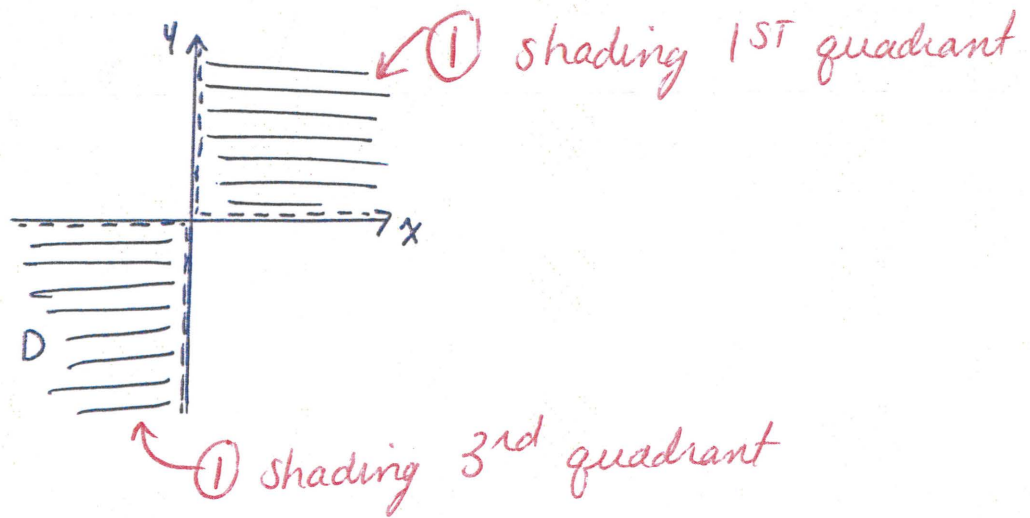 y
① shading 1ST quadrant
x
D
① shading 3rd quadrant